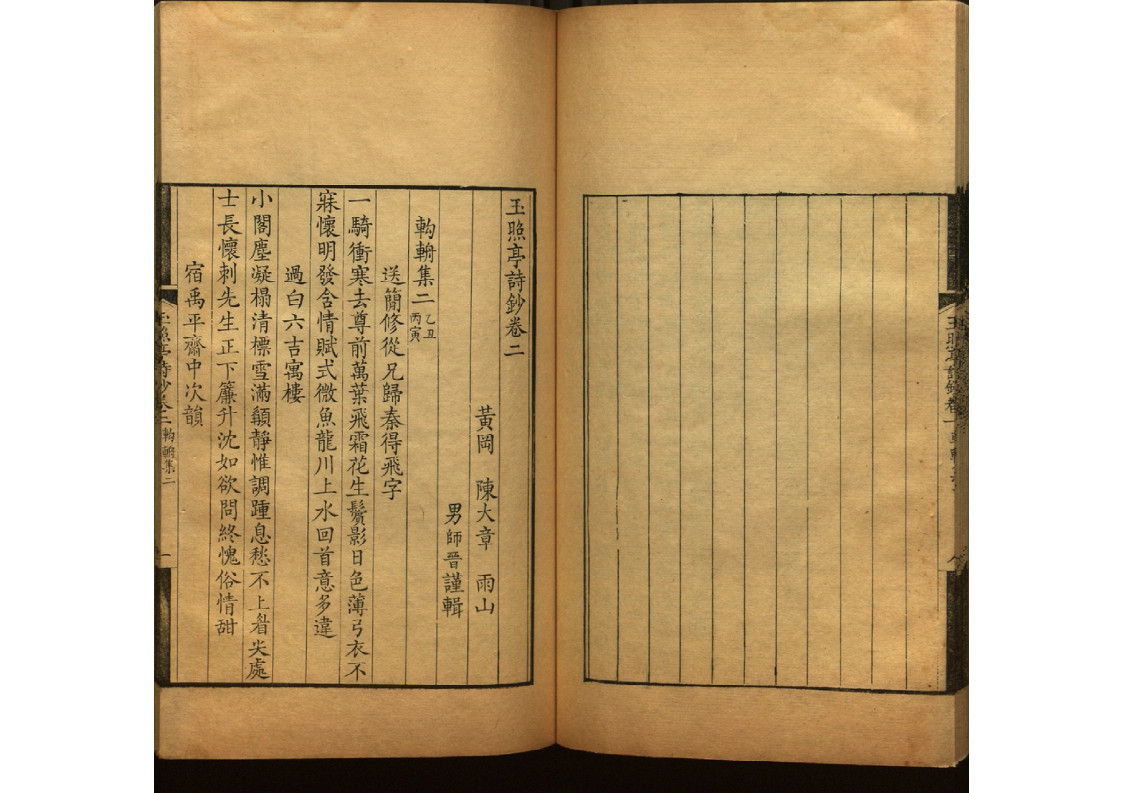 玉照亭詩鈔卷二
黃岡　陳大章　雨山
男師晋謹輯
軥輈集二 乙丑 丙寅
送簡修從兄歸秦得飛字
一騎衝寒去尊前萬葉飛霜花生鬢影日色薄弓衣不
寐懷明發含情賦式微魚龍川上水回首意多違
過白六吉寓樓
小閣塵凝榻清標雪滿顙靜惟調踵息愁不上眉尖處
士長懷刺先生正下簾升沈如欲問終愧俗情甜
宿禹平齋中次韻
玉照亭詩鈔卷二 軥輈集二 一